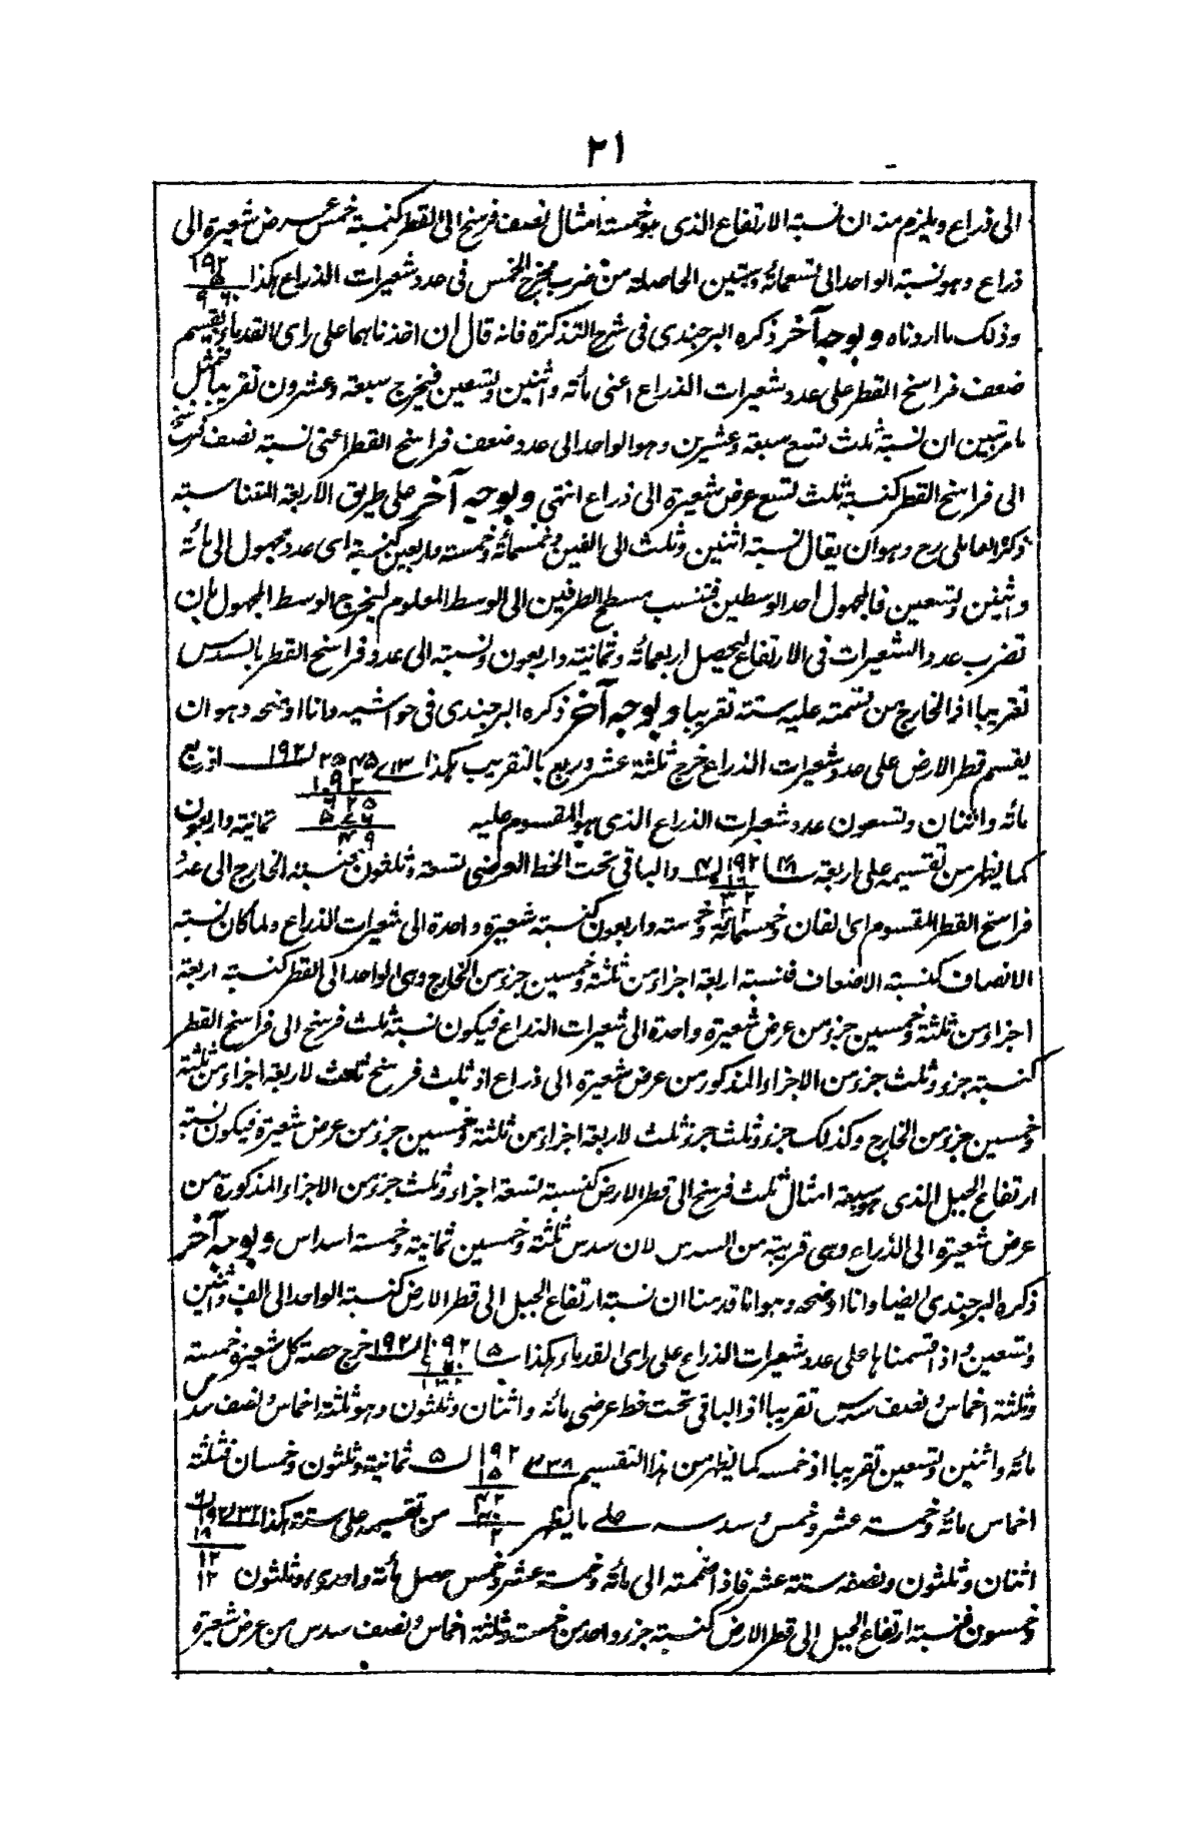 ٢١
الى ذراع ويلزم منه ان نسبة الارتفاع الذى هو خمسة امثال نصف فرسخ الى القطر كنسبة خمس عرض شعيرة الى
ذراع وهو نسبة الواحد الى تسعمائة وستين الحاصلة من ضرب مخرج الخمس فى عدد شعيرات الذراع هكذا ١٩٢ ٥ ٩٦٠
وذلك ما اردناه وبوجه آخر ذكره البرجندى فى شرح التذكرة فانه قال ان اخذناهما على راى القدماء ويقسم
ضعف فراسخ القطر على عدد شعيرات الذراع اعنى مأته واثنين وتسعين فيخرج سبعة وعشرون تقريبا فبمثل
مامر تبين ان نسبة ثلث تسع سبعة وعشرين وهو الواحد الى عدد ضعف فراسخ القطر اعنى نسبة نصف فرسخ
الى فراسخ القطر كنسبة ثلث تسع عرض شعيرة الى ذراع انتهى وبوجه آخر على طريق الاربعة المتناسبة
ذكره العاملى رح وهو ان يقال نسبة اثنين وثلث الى الفين وخمسمائة وخمسة واربعين كنسبة اى عدد مجهول الى مائة
واثنين وتسعين فالمجهول احد الوسطين فتنسب مسطح الطرفين الى الوسط المعلوم ليخرج الوسط المجهول بان
تضرب عدد الشعيرات فى الارتفاع ليحصل اربعمائة وثمانية واربعون ونسبته الى عدد فراسخ القطر بالسدس
تقريبا اذ الخارج من قسمته عليه ستة تقريبا وبوجه آخر ذكره البرجندى فى حواشيه وانا اوضحه وهو ان
يقسم قطر الارض على عدد شعيرات الذراع خرج ثلثة عشر وربع بالتقريب هكذا ١٣ ٢٥٤٥ ١٩٢ اذ ربع
مائة واثنان وتسعون عدد شعيرات الذراع الذى هو المقسوم عليه ١٩٢ ٦٢٥ ٥٧٦ ٤٩ ثمانية واربعون
كما يظهر من تقسيمه على اربعة ٤٨ ١٩٢ ٤ ١٦ ٣٢ والباقى تحت الخط العرضى تسعة وثلثون فنسبة الخارج الى عدد
فراسخ القطر المقسوم اى الفان وخمسمائة وخمسته واربعون كنسبة شعيرة واحدة الى شعيرات الذراع ولما كان نسبة
الانصاف كنسبة الاضعاف فنسبة اربعة اجزاء من ثلثة وخمسين جزء من الخارج وهى الواحد الى القطر كنسبة اربعة
اجزاء من ثلثة وخمسين جزء من عرض شعيرة واحدة الى شعيرات الذراع فيكون نسبة ثلث فرسخ الى فراسخ القطر
كنسبة جزء وثلث جزء من الاجزاء المذكور من عرض شعيرة الى ذراع اذ ثلث فرسخ ثلث لاربعة اجزاء من ثلثة
وخمسين جزء من الخارج وكذلك جزء وثلث جزء ثلث لاربعة اجزاء من ثلثة وخمسين جزء من عرض شعيرة فيكون نسبة
ارتفاع الجبل الذى هو سبعة امثال ثلث فرسخ الى قطر الارض كنسبة تسعة اجزاء وثلث جزء من الاجزاء المذكورة من
عرض شعيرة الى الذراع وهى قريبة من السدس لان سدس ثلثة وخمسين ثمانية وخمسة اسداس وبوجه آخر
ذكره البرجندى ايضا وانا اوضحه وهو انا قدمنا ان نسبة ارتفاع الجبل الى قطر الارض كنسبة الواحد الى الف واثنين
وتسعين واذا قسمناها على عدد شعيرات الذراع على راى القدماء هكذا ٥ ١٠٩٢ ١٩٢ خرج حصة كل شعيرة خمسة
وثلثة اخماس ونصف سدس تقريبا اذ الباقى تحت خط عرضى مائة واثنان وثلثون وهو ثلثة اخماس ونصف سدس
مائة واثنين وتسعين تقريبا اذ خمسه كما يظهر من هذا التقسيم ٣٨ ١٩٢ ٥ ١٥ ٤٢ ٤٠ ٢ ثمانية وثلثون وخمسان فثلثة
اخماس مائة وخمسة عشر وخمس وسدسه على ما يظهر من تقسيمه على ستة هكذا ٣٢ ١٩٢ ٦ ١٨ ١٢ ١٢
اثنان وثلثون ونصفه ستة عشر فاذا ضممته الى مائة وخمسة عشر وخمس حصل مأته واحدى وثلثون
وخمسون فنسبة ارتفاع الجبل الى قطر الارض كنسبة جزء واحد من خمسة وثلثة اخماس ونصف سدس من عرض شعيرة